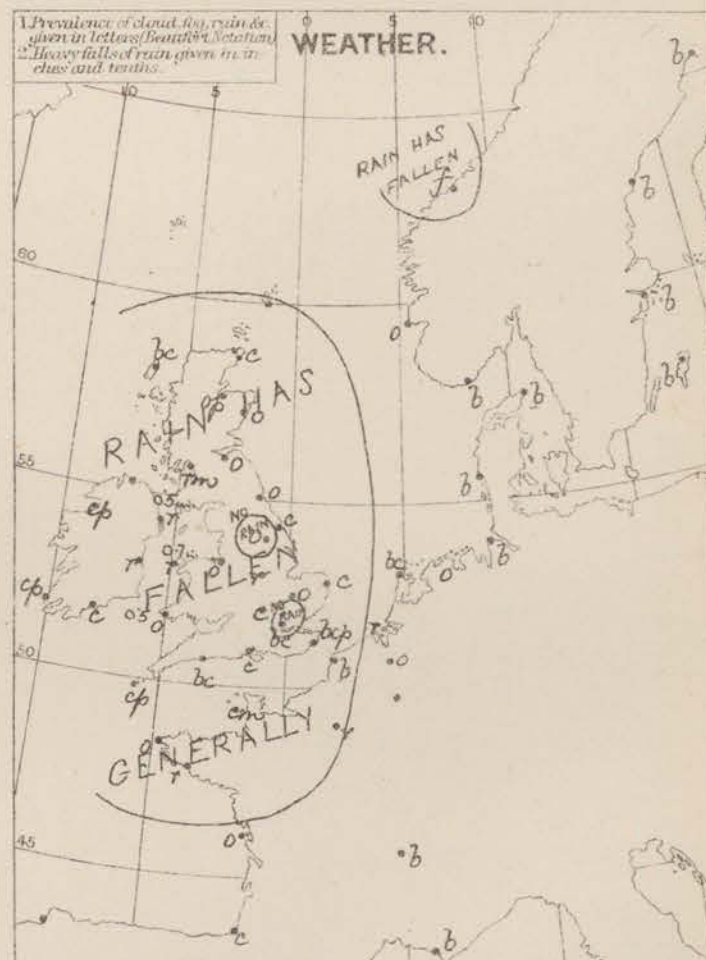 1. Prevalence of cloud, fog, rain &c.
given in letters (Beaufort Notation)
2. Heavy falls of rain given in in
ches and tenths.
WEATHER.
10
5
0
5
10
b
RAIN HAS
FALLEN
f
b
60
b
o
b
bc
c
b
b
RAIN HAS
o
o
55
rm
b
cp
0.5 in
r
o
NO
RAIN
c
b
r
0.7 in
r
o
bc
o
FALLEN
cp
c
0.5
o
c
c
NO
RAIN
o
bc
bcp
r
50
bc
c
b
o
cp
cm
GENERALLY
o
r
r
45
o
b
c
b